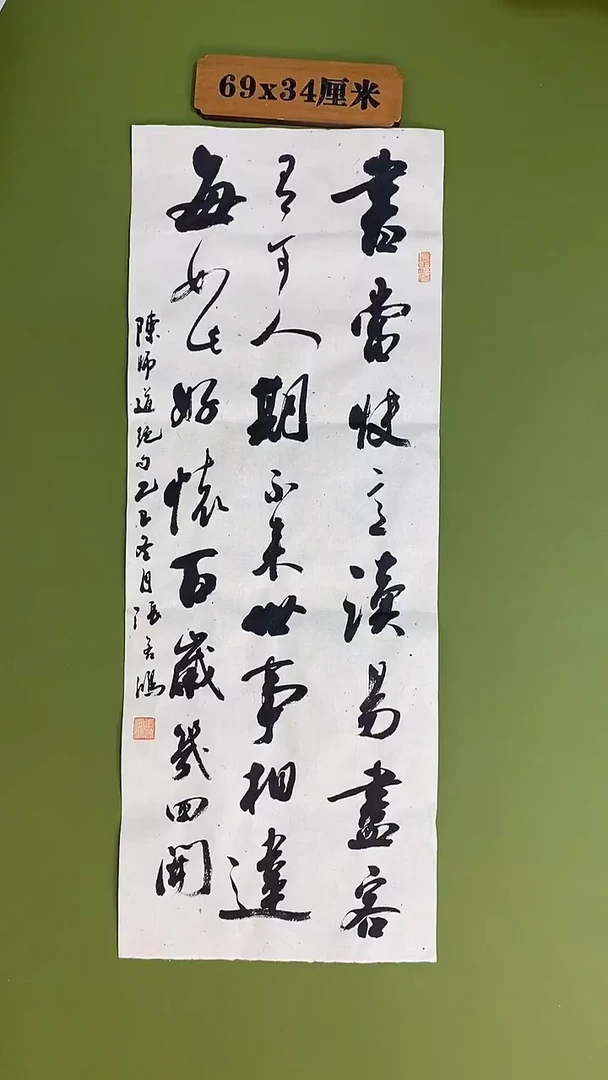 69x34厘米
書當快意讀易盡客
有可人期不来世事相違
每如此好懷百歲幾回開
陳師道絕句乙巳冬月張鴻